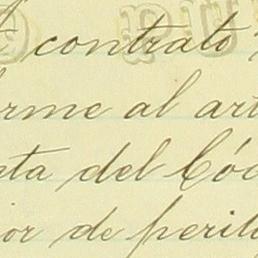 contrato
rme al art
ta del Cód
ior de perit